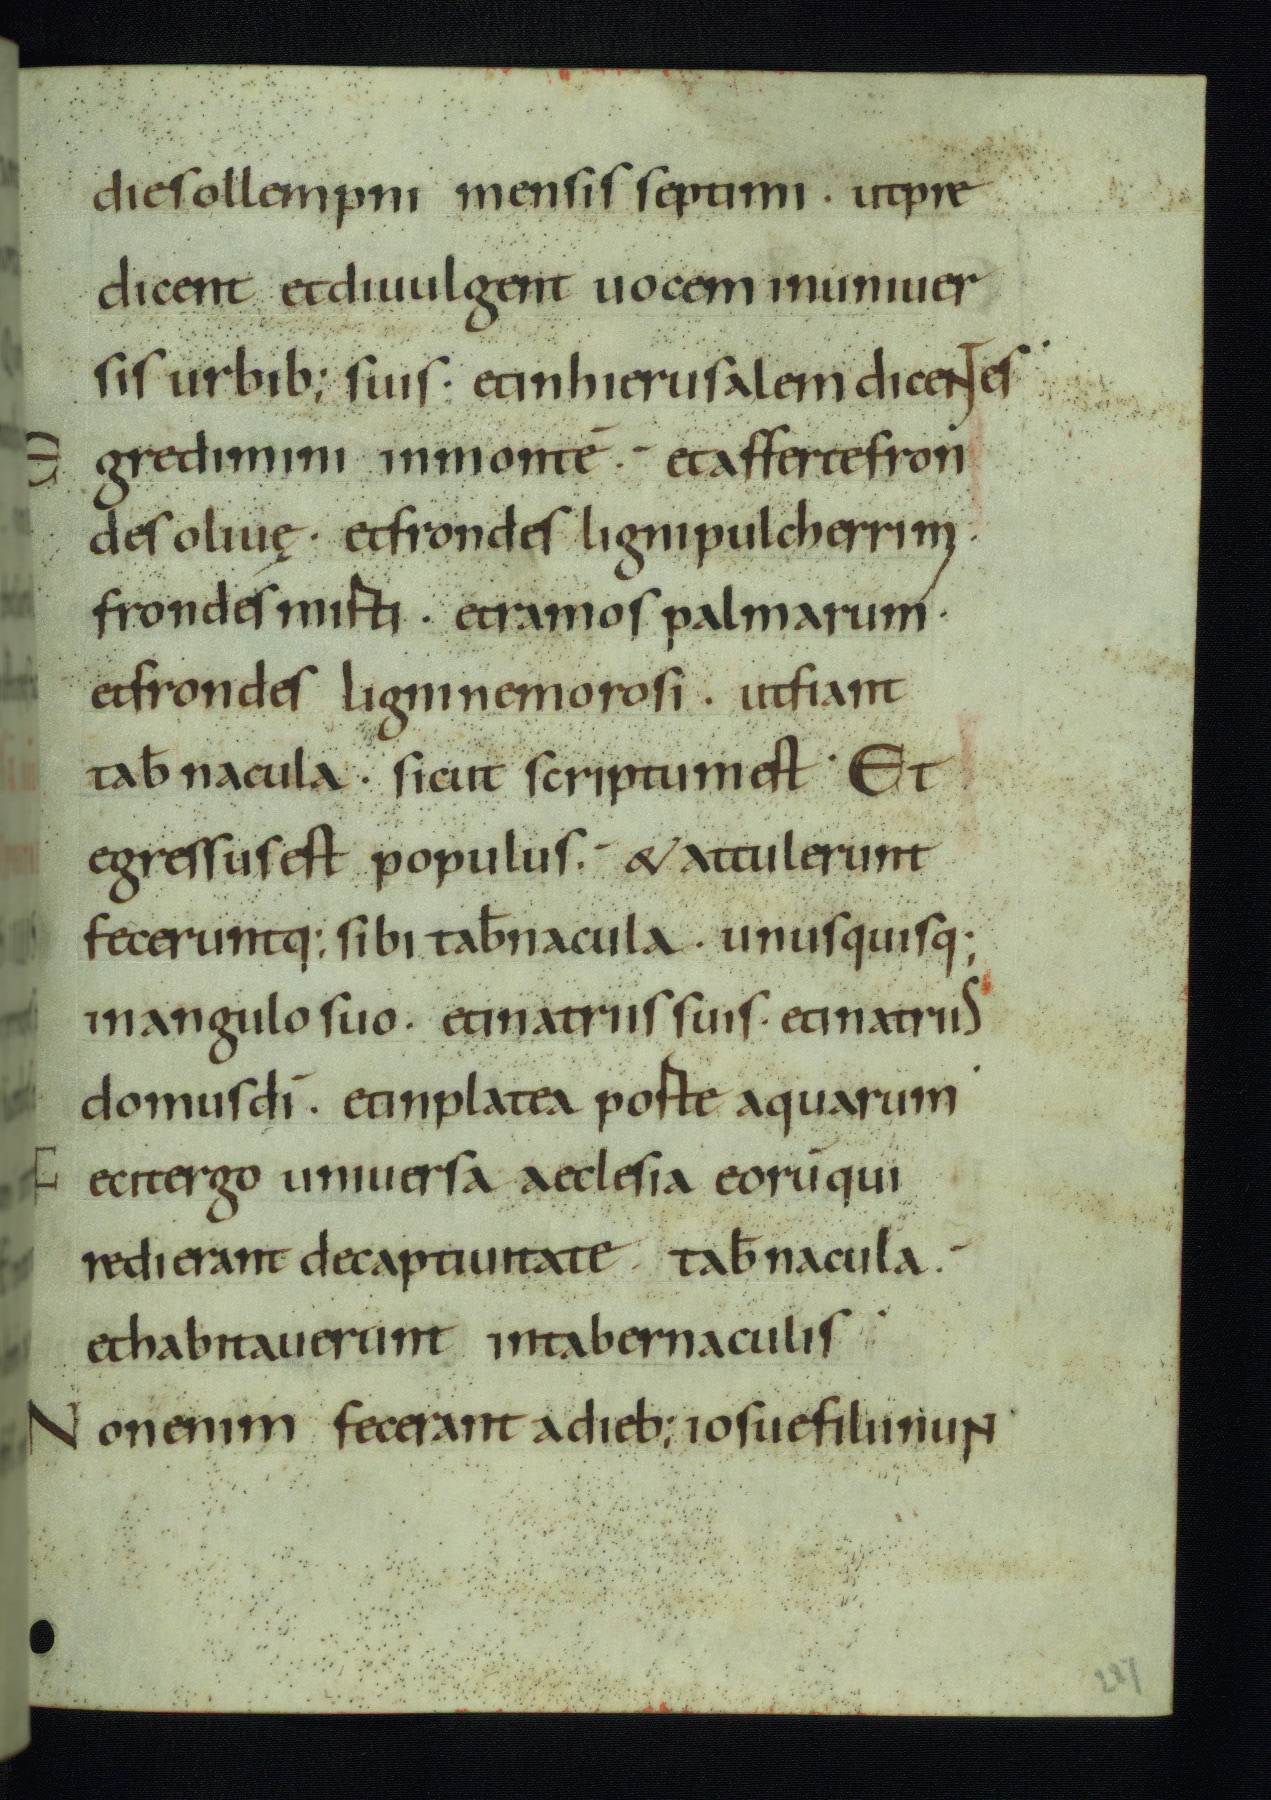 die sollempni mensis septimi · ut pre
dicent et diuulgent uocem in uniuer
sis urbib; suis · et in hierusalem dicentes ·
E gredimini in montē · et afferte fron
des oliuę · et frondes ligni pulcherrimi ·
frondes misti · et ramos palmarum ·
et frondes ligni nemorosi · ut fiant
tab̄nacula · sicut scriptum est · Et
egressus est populus · & attulerunt
feceruntq; sibi tab̄nacula · unusquisq;
in angulo suo · et in atriis suis · et in atriis
domus dī · et in platea poste aquarum ·
F ecit ergo uniuersa aeclesia eorū qui
redierant de captiuitate tab̄nacula ·
et habitauerunt in tabernaculis ·
N on enim fecerant a dieb; iosue filii nun ·
227